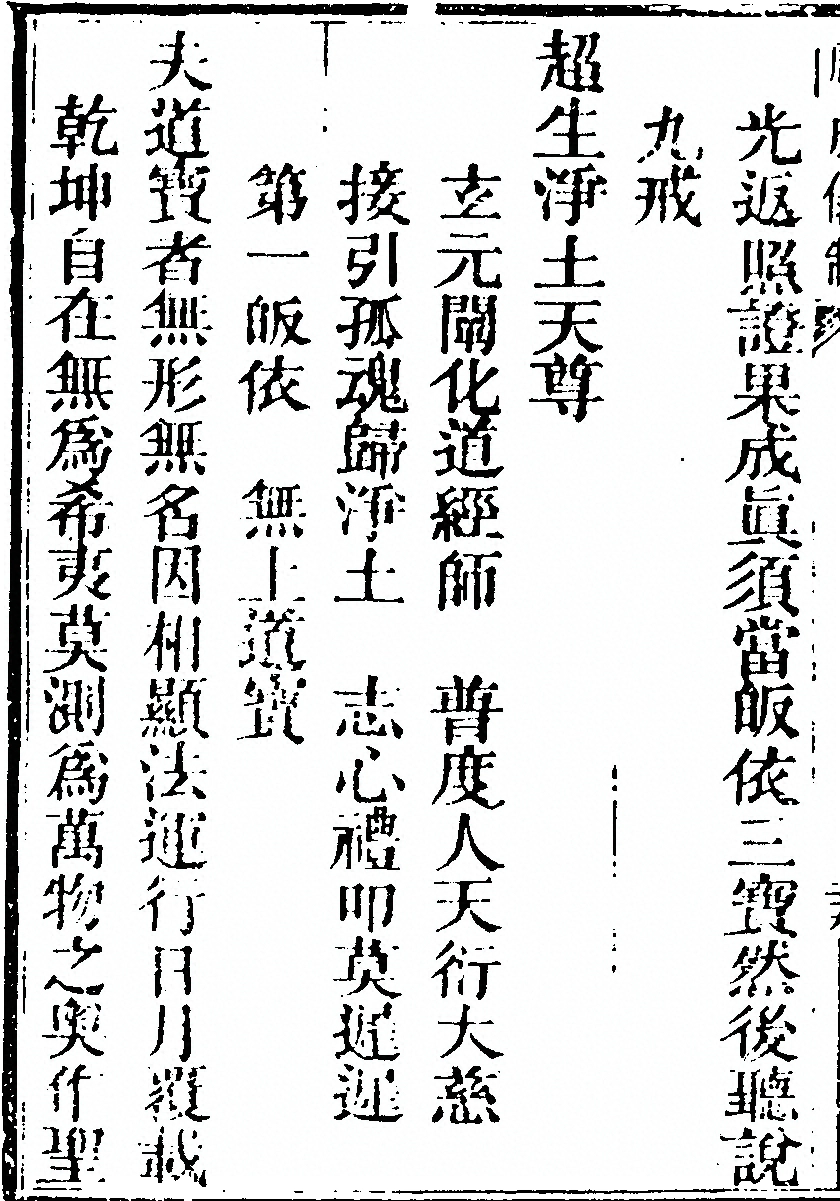 光返照證果成眞須當皈依三寶然後聽說
九戒
超生淨土天尊
玄元闡化道經師　普度人天衍大慈
接引孤魂歸淨土　志心禮叩莫遲遲
第一皈依　無上道寶
夫道寶者無形無名因相顯法運行日月覆載
乾坤自在無爲希夷莫測爲萬物之奥作聖